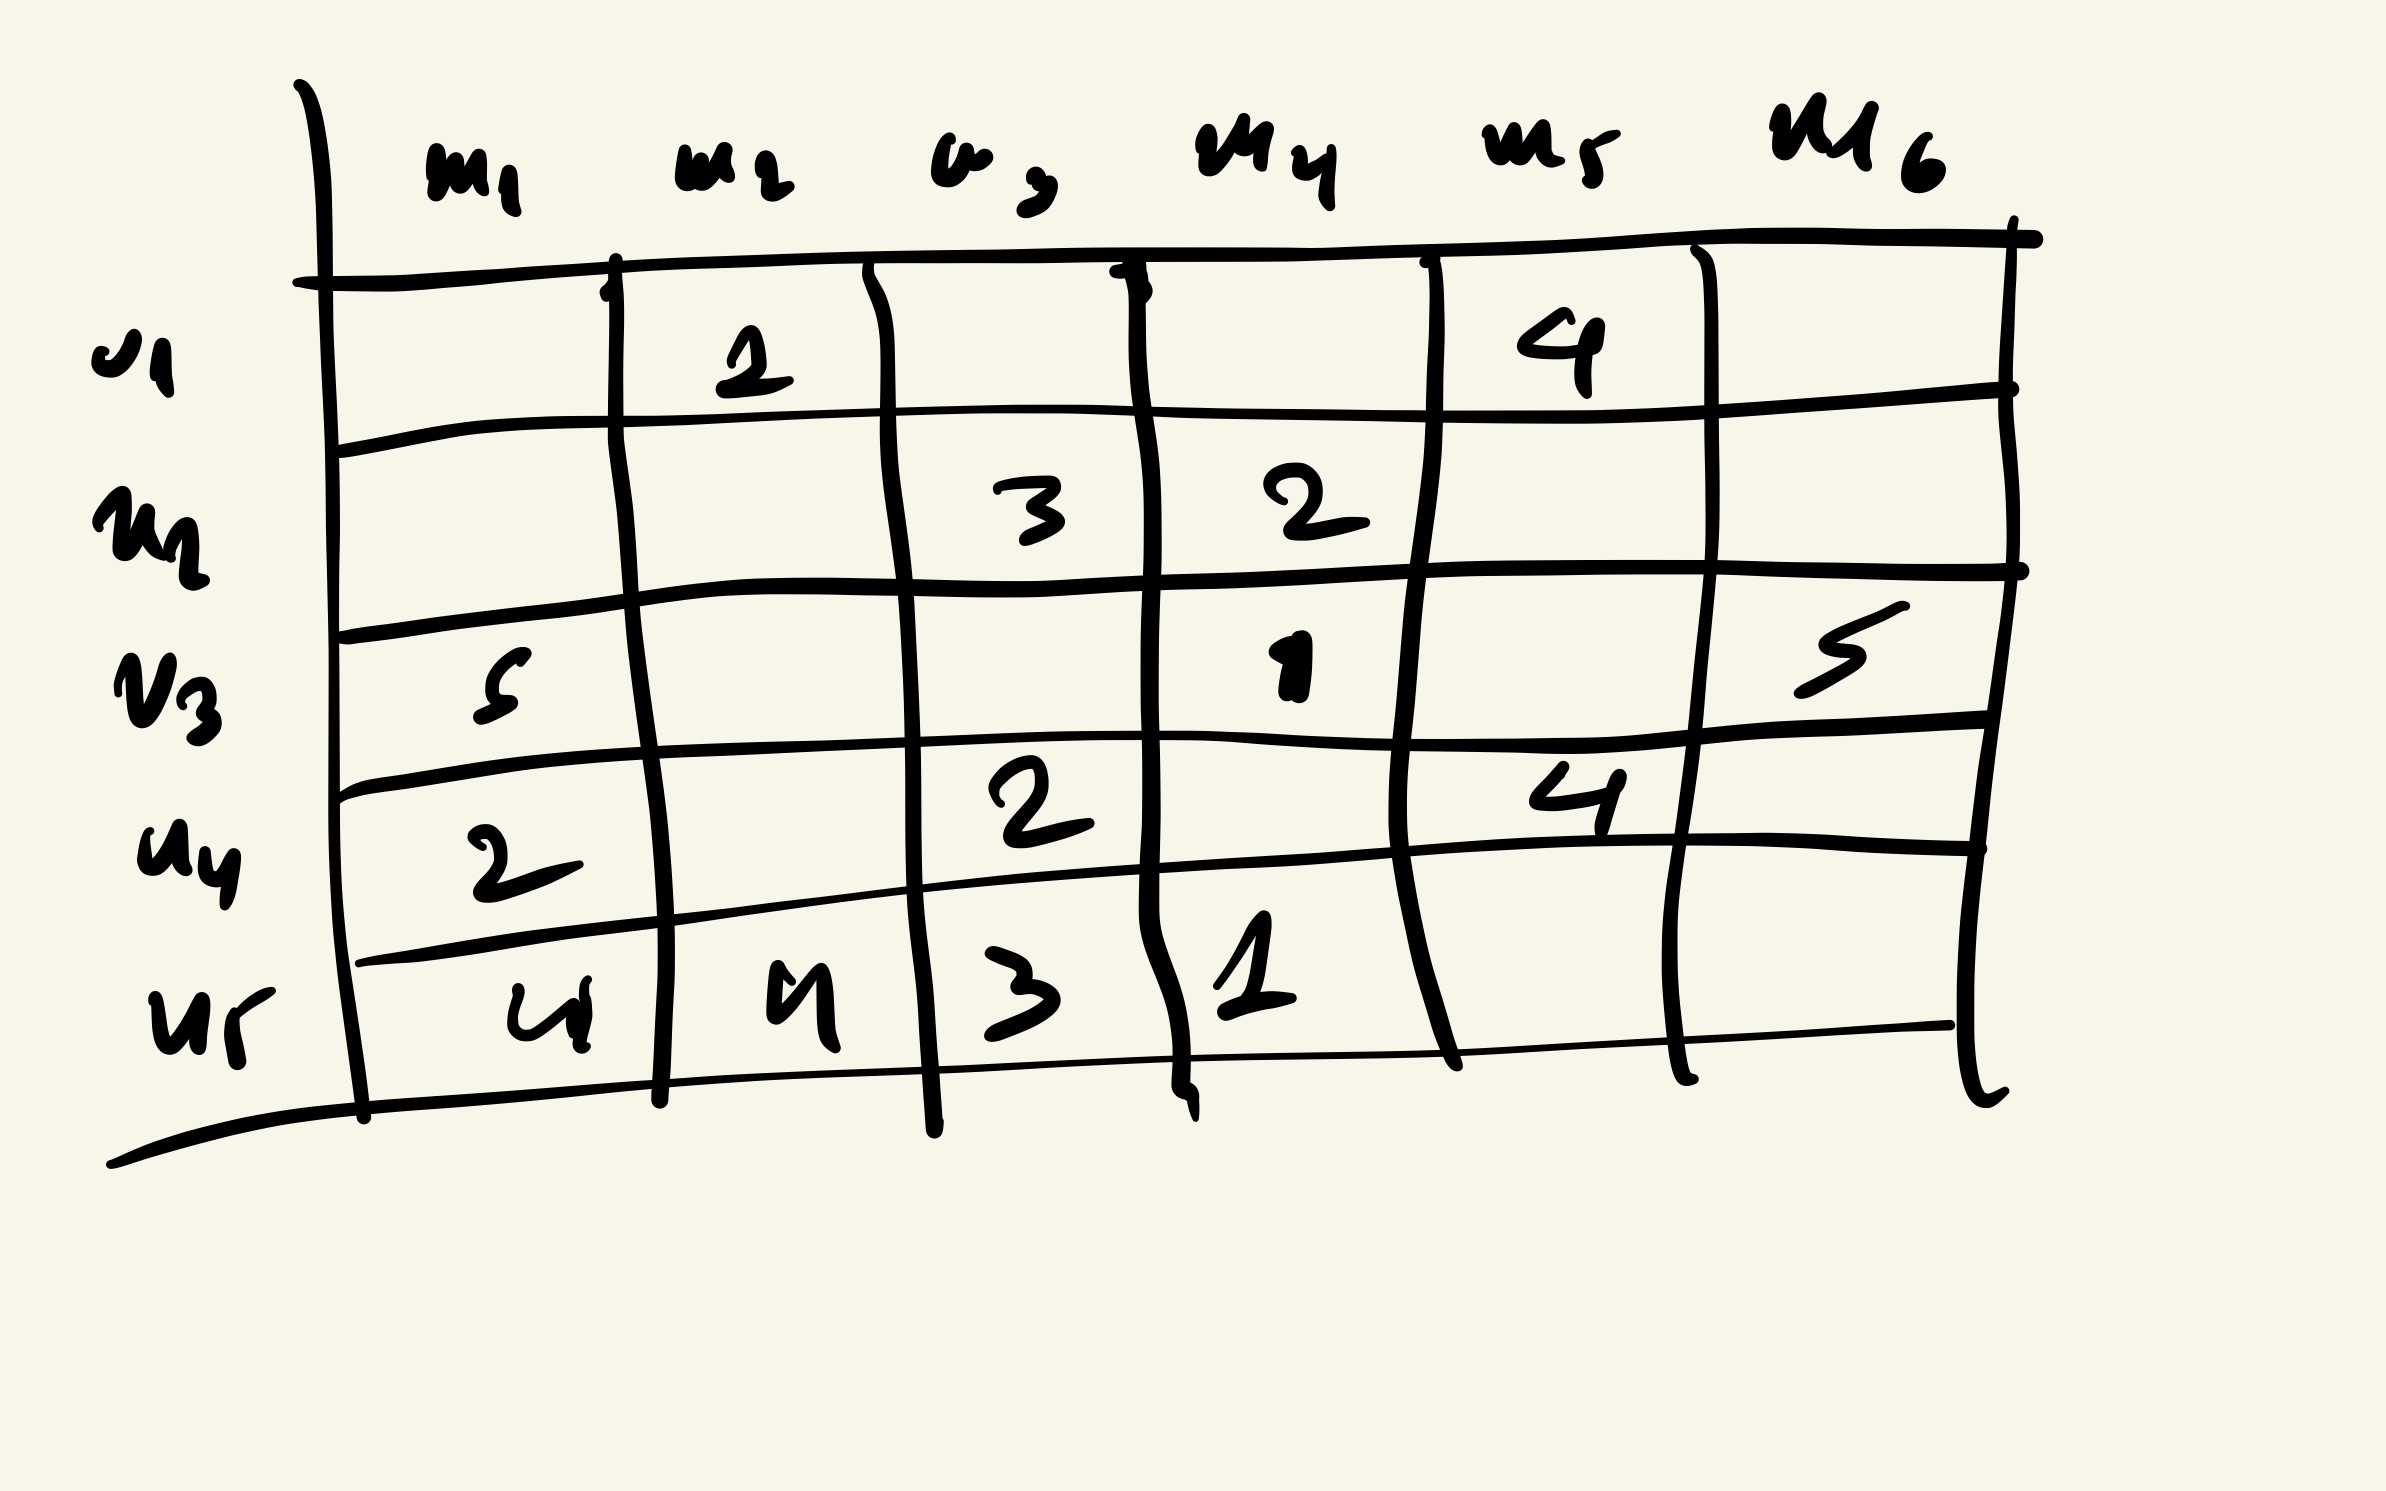 m1 m2 m3 m4 m5 m6
u1 1 4
u2 3 2
u3 5 1 5
u4 2 2 4
u5 4 3 1